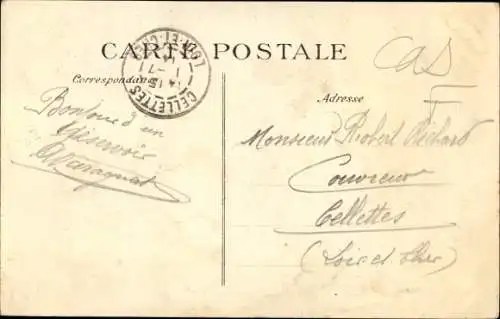 CARTE POSTALE
CAS
Correspondance
CELLETTES
LOIR-ET-CHER
Adresse
Bonjour d'un
réserviste
Monsieur Robert Pichard
Couvreur
Cellettes
(Loir et Cher)